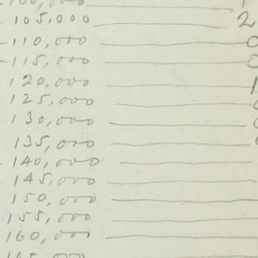 105,000 2
110,000 0
115,000 0
120,000 1
125,000 0
130,000 0
135,000
140,000
145,000
150,000
155,000
160,000
165,000